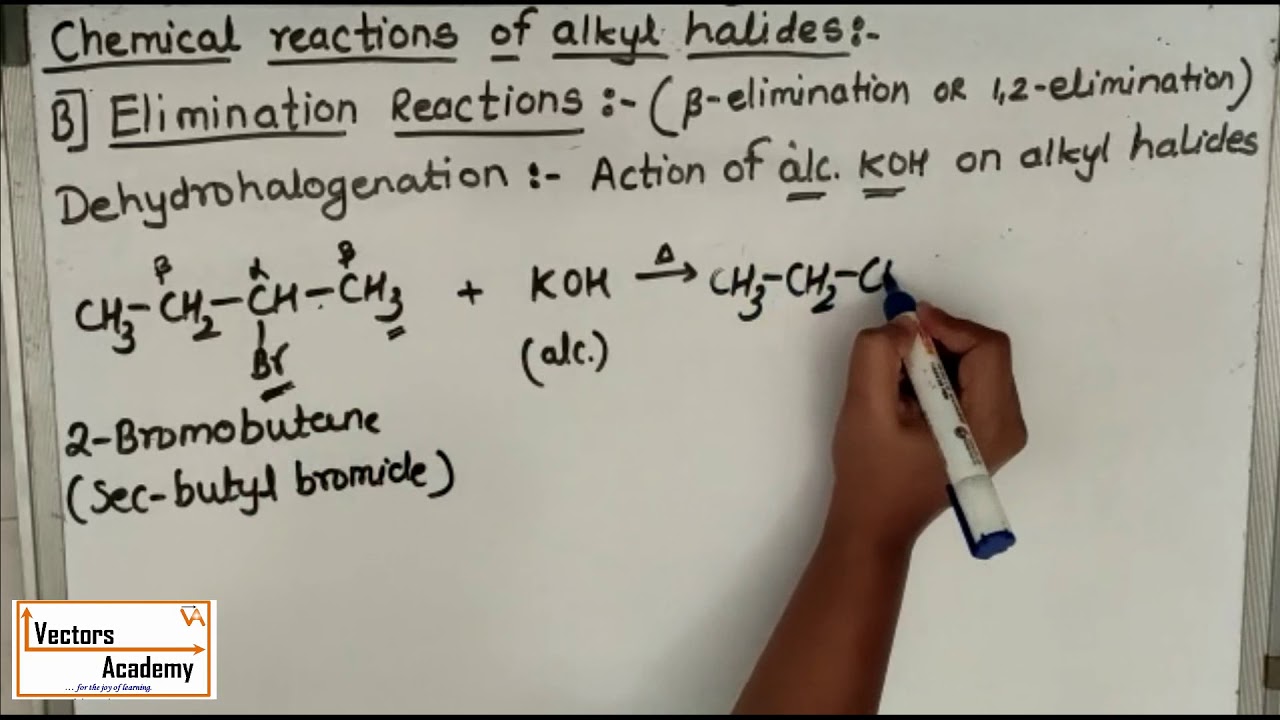 Chemical reactions of alkyl halides:-
B] Elimination Reactions :- (β-elimination OR 1,2-elimination)
Dehydrohalogenation :- Action of alc. KOH on alkyl halides
β α β
CH3-CH2-CH-CH3 + KOH Δ→ CH3-CH2-C
Br (alc.)
2-Bromobutane
(Sec-butyl bromide)
VA
Vectors
Academy
... for the joy of learning.